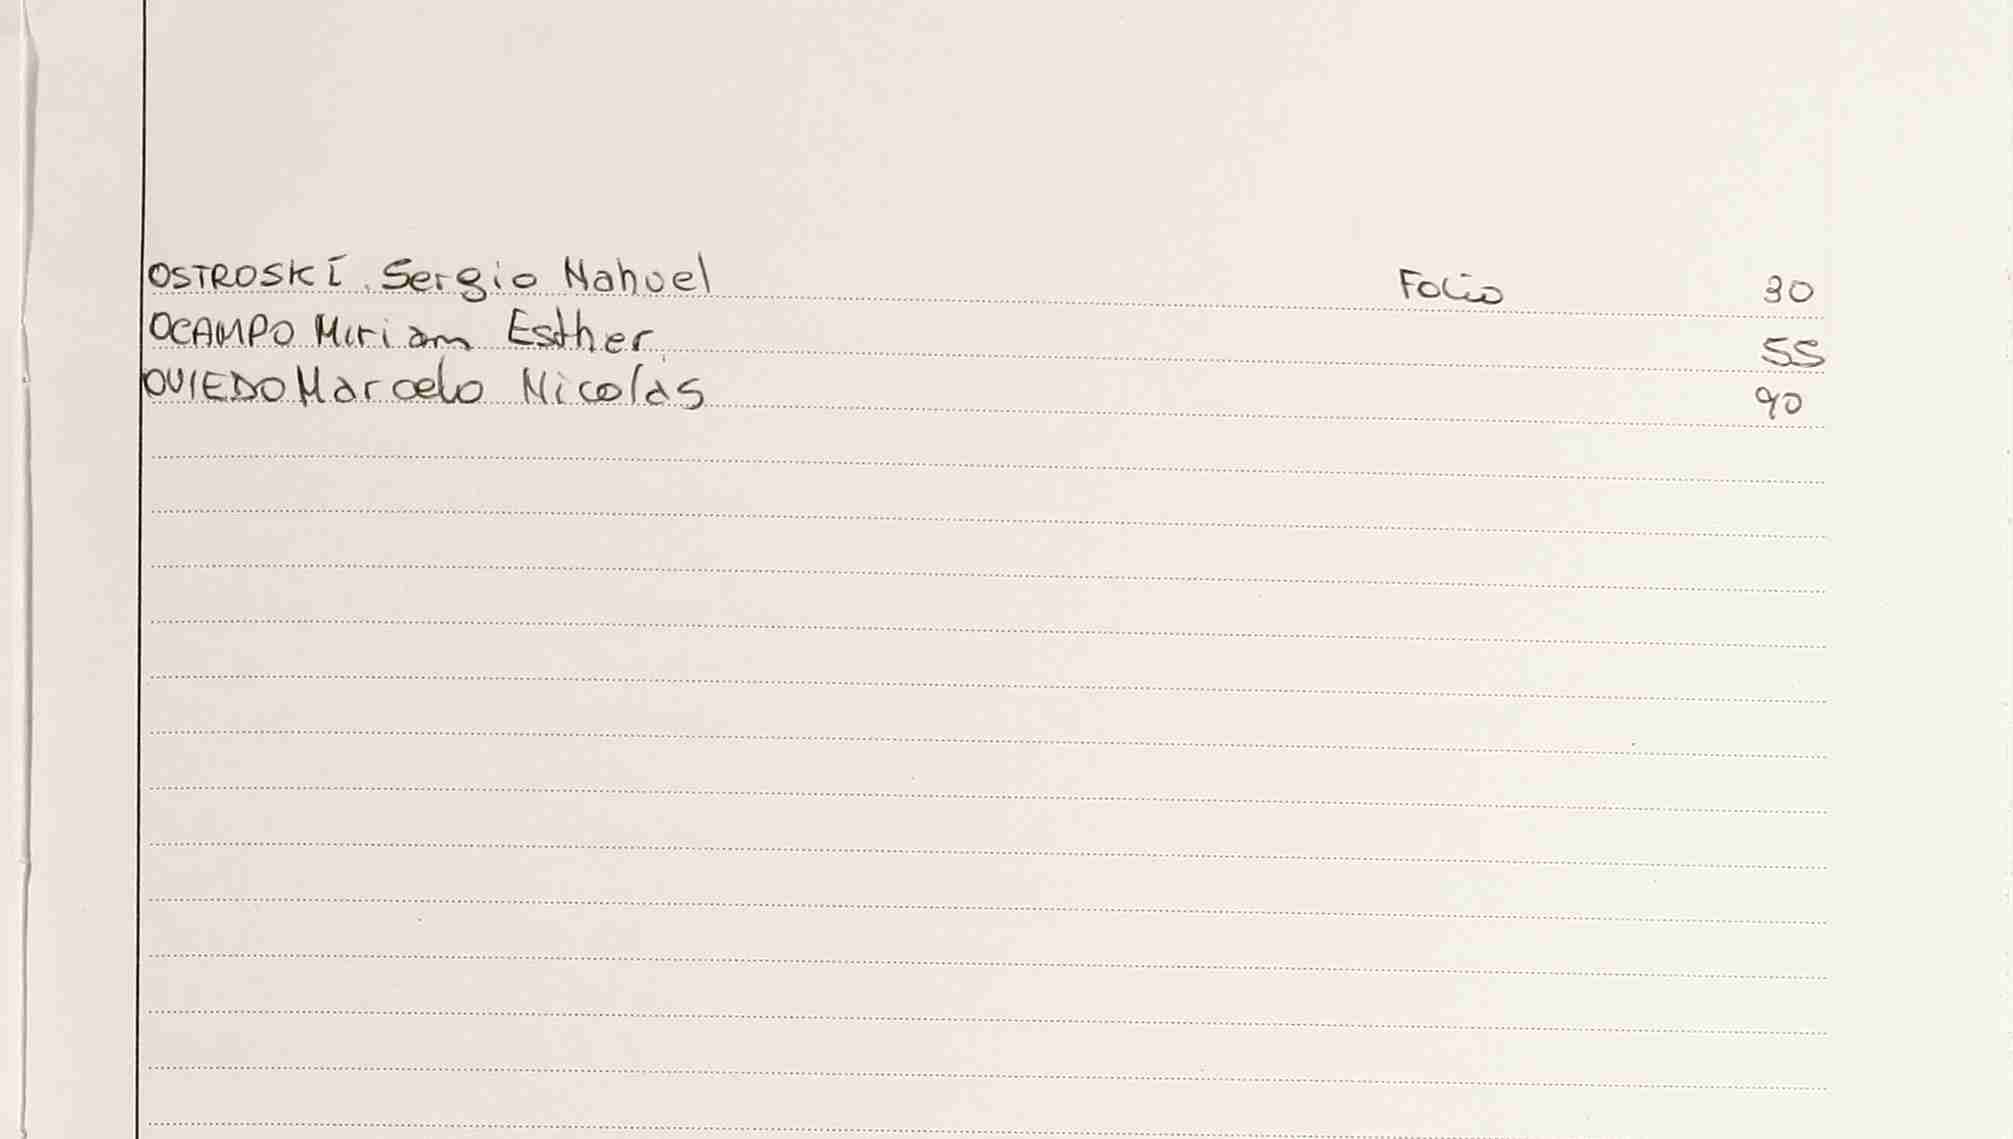 OSTROSKI, Sergio Nahuel Folio 30
OCAMPO Miriam Esther 55
OVIEDO Marcelo Nicolás 90